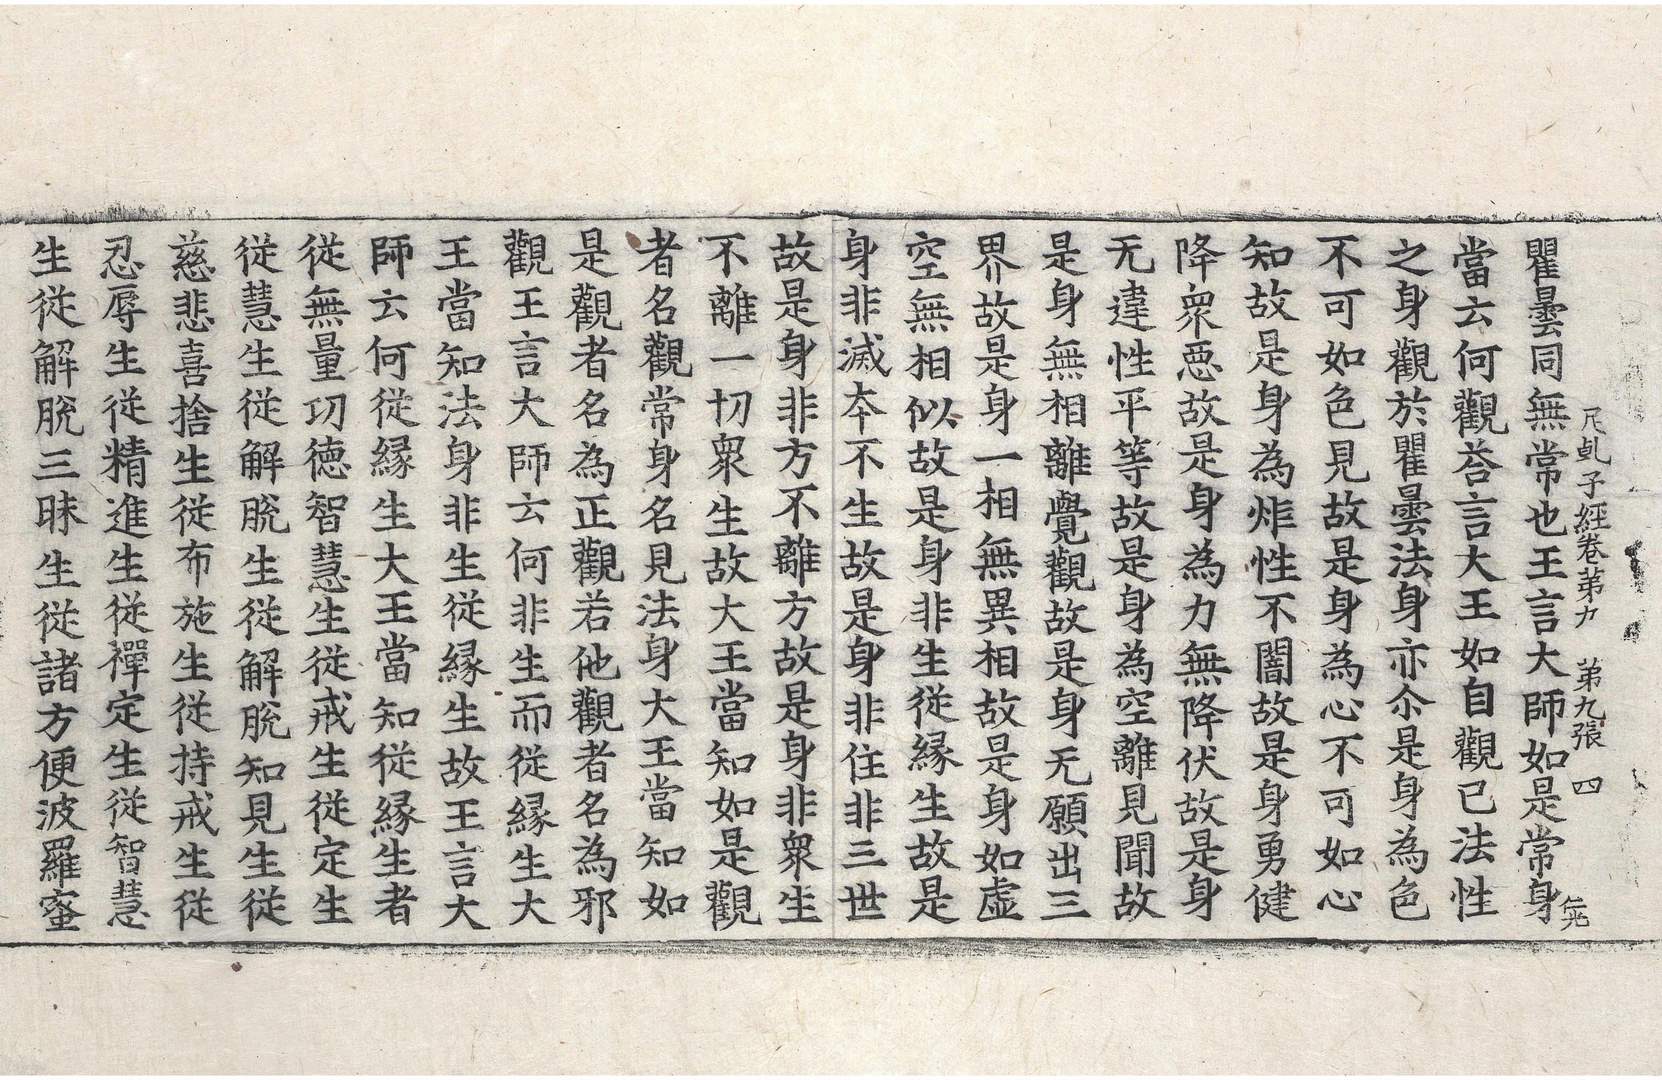 瞿曇同無常也王言大師如是常身
尼乹子經卷第九　第九張　四
當云何觀荅言大王如自觀已法性
之身觀於瞿曇法身亦尒是身為色
不可如色見故是身為心不可如心
知故是身為炬性不闇故是身勇健
降衆惡故是身為力無降伏故是身
无違性平等故是身為空離見聞故
是身無相離覺觀故是身无願出三
界故是身一相無異相故是身如虛
空無相似故是身非生從緣生故是
身非滅本不生故是身非住非三世
故是身非方不離方故是身非衆生
不離一切衆生故大王當知如是觀
者名觀常身名見法身大王當知如
是觀者名為正觀若他觀者名為邪
觀王言大師云何非生而從緣生大
王當知法身非生從緣生故王言大
師云何從緣生大王當知從緣生者
從無量功德智慧生從戒生從定生
從慧生從解脫生從解脫知見生從
慈悲喜捨生從布施生從持戒生從
忍辱生從精進生從禪定生從智慧
生從解脫三昧生從諸方便波羅蜜